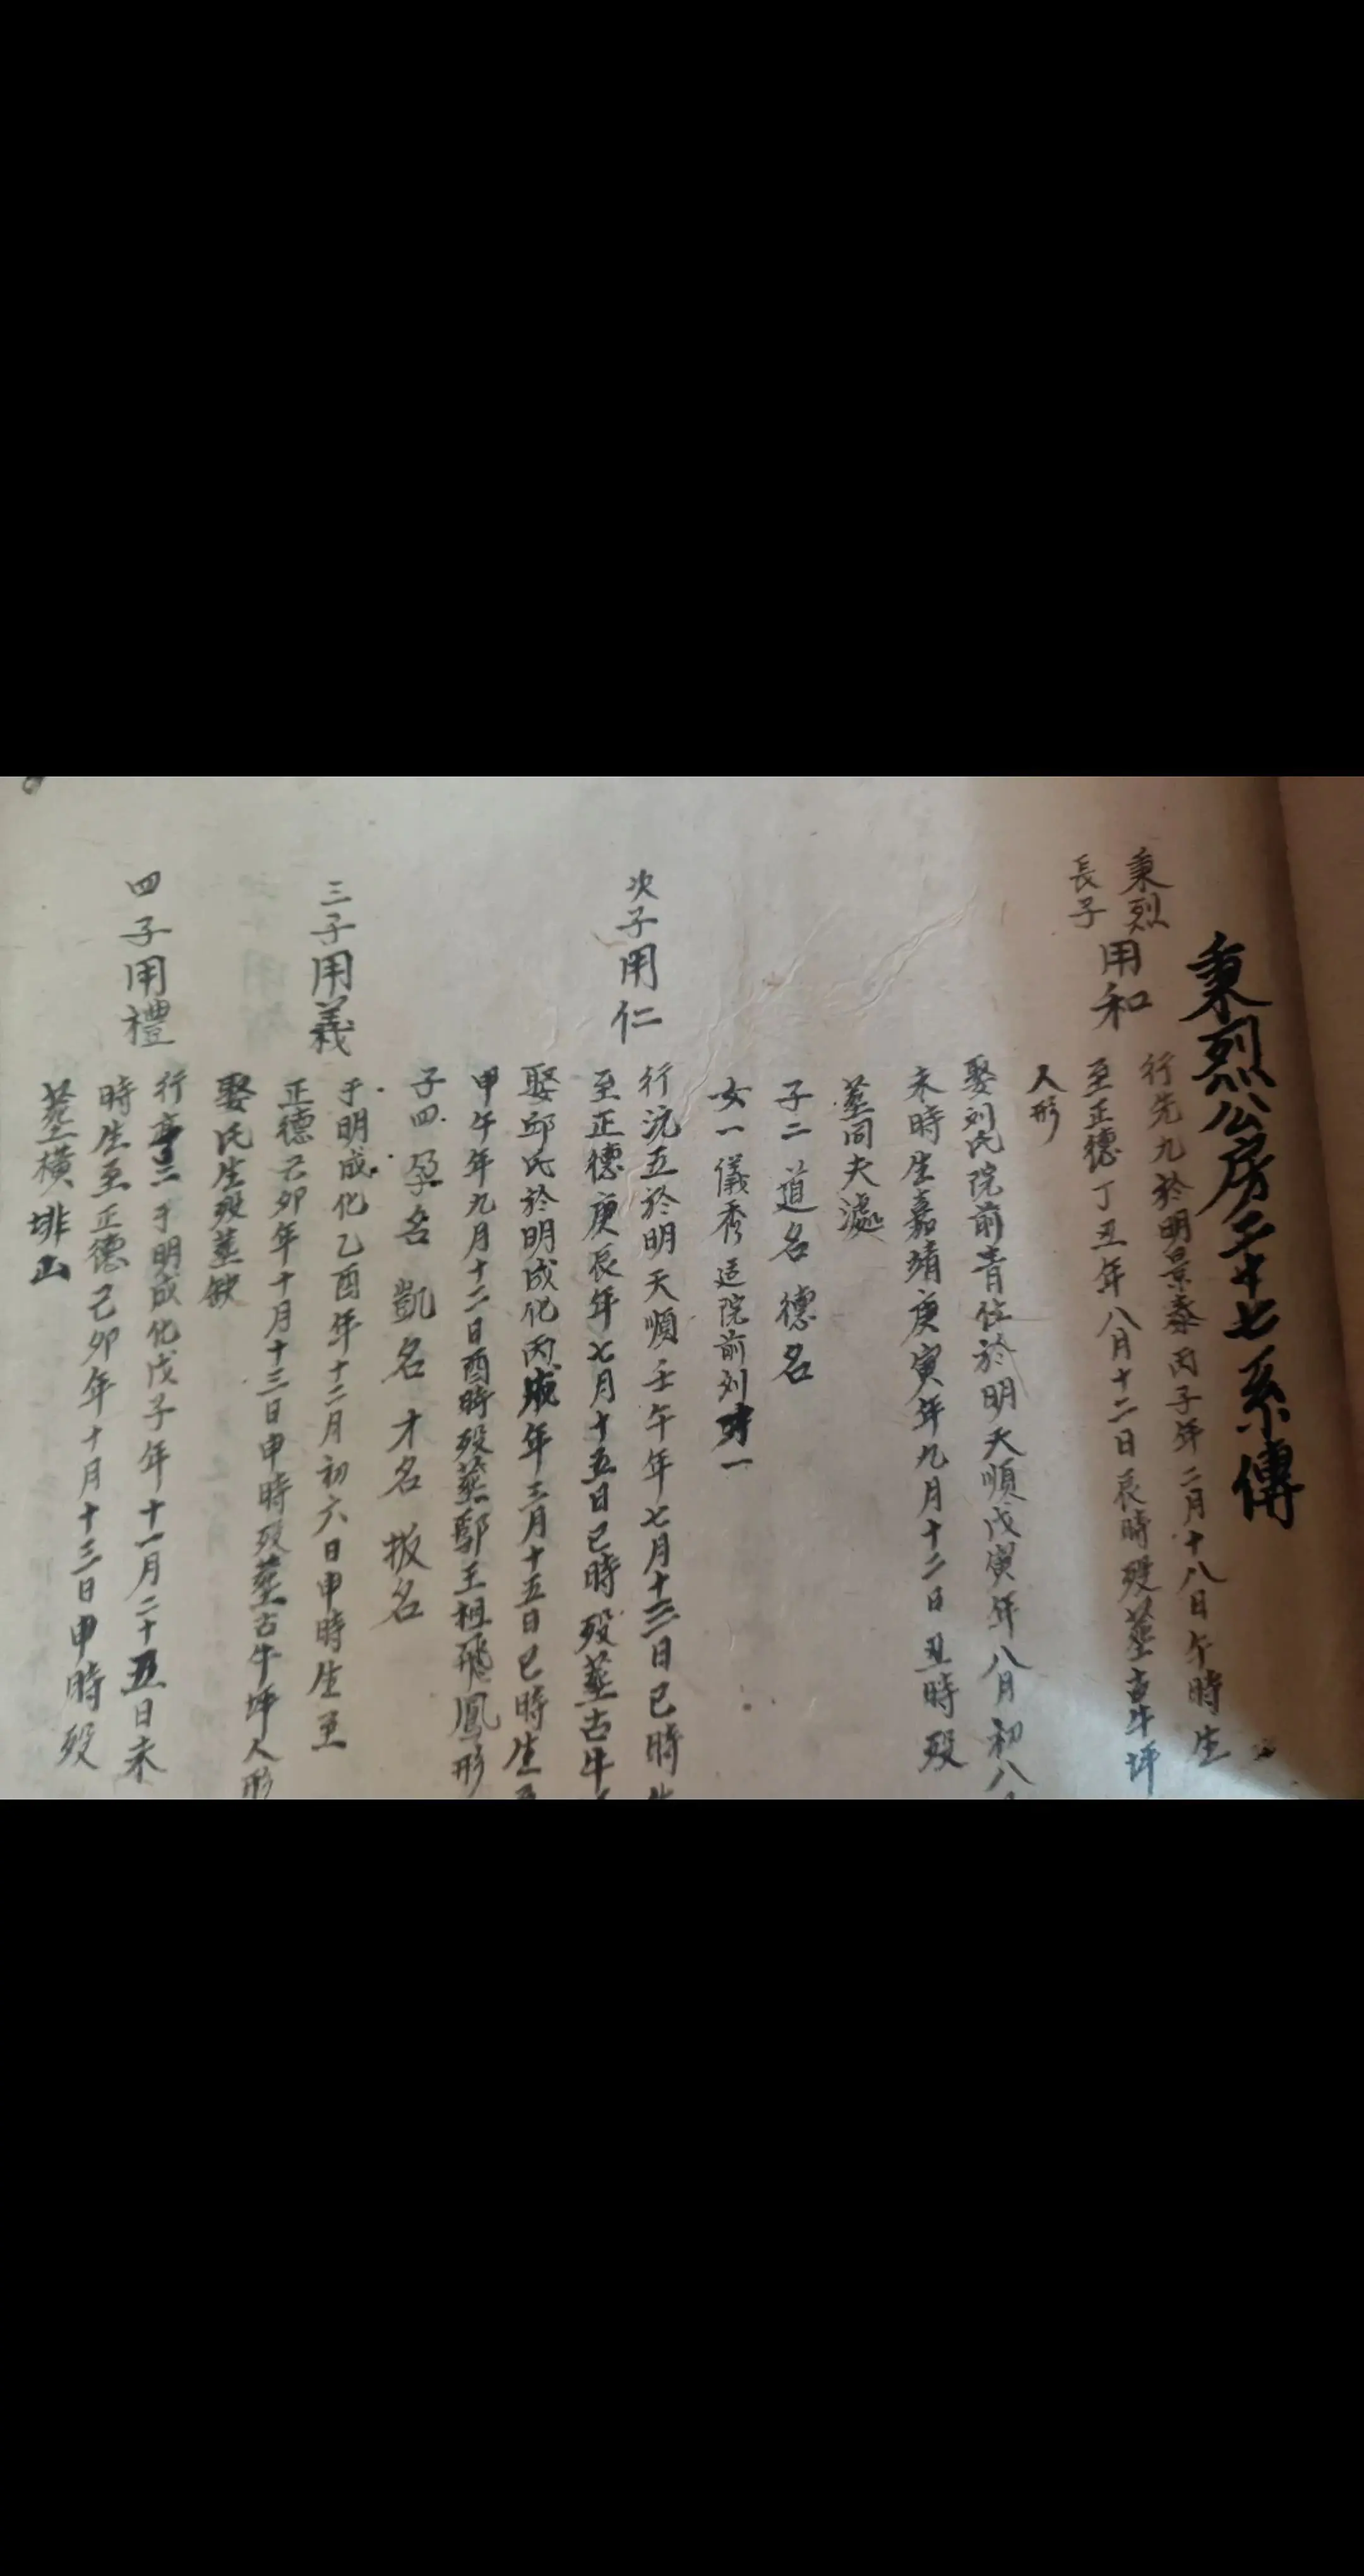 秉烈公房二十七系傳
秉烈
長子
用和
行先九於明景泰丙子年二月十八日午時生
至正德丁丑年八月十二日辰時殁塟古牛坪
人形
娶刘氏院前青位於明天順戊寅年八月初八
未時生嘉靖庚寅年九月十二日丑時殁
塟同夫處
子二 道名 德名
女一 儀秀 适院前刘
次子用仁
行沅五於明天順壬午年七月十三日巳時
至正德庚辰年七月十五日巳時殁塟古牛
娶邱氏於明成化丙戌年三月十五日巳時生
甲午年九月十二日酉時殁塟鄢王祖飛鳳形
子四 孕名 凱名 才名 扳名
三子用義
于明成化乙酉年十二月初六日申時生至
正德己卯年十月十三日申時殁塟古牛坪人形
娶氏生殁塟缺
四子用禮
行亨二于明成化戊子年十一月二十五日未
時生至正德己卯年十月十三日申時殁
塟横排山